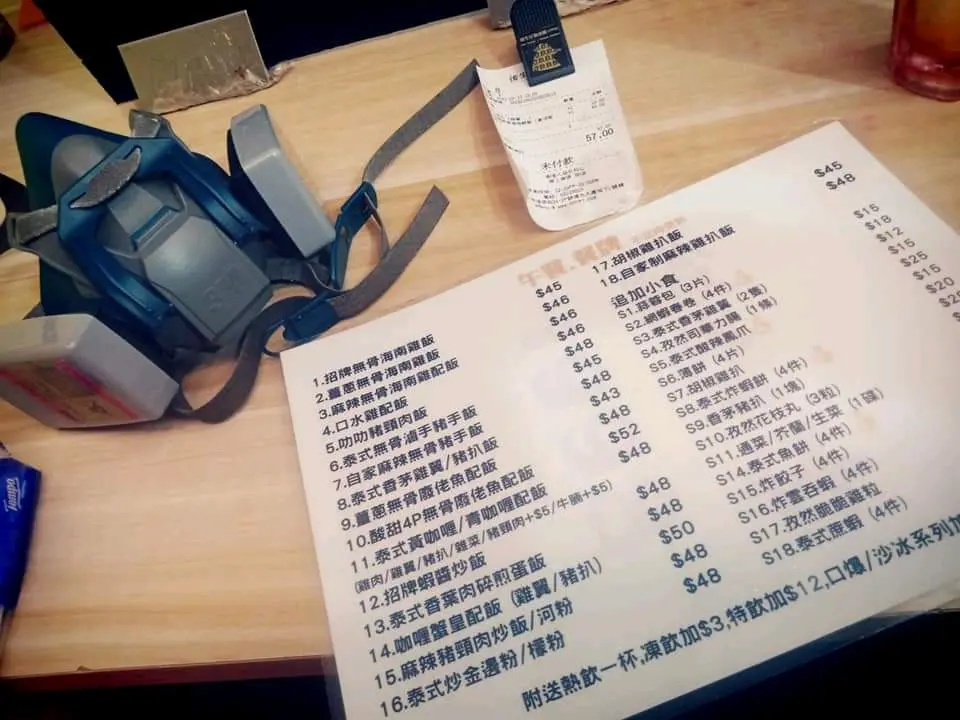 57.00
未付款
午賣.餐牌
1.招牌無骨海南雞飯 $45
2.薑蔥無骨海南雞飯 $46
3.麻辣無骨海南雞配飯 $46
4.口水雞配飯 $46
5.叻叻豬頸肉飯 $48
6.泰式無骨滷手豬手飯 $45
7.自家麻辣無骨豬手飯 $48
8.泰式香茅雞翼/豬扒飯 $43
9.薑蔥無骨廢佬魚配飯 $48
10.酸甜4P無骨廢佬魚配飯 $52
11.泰式黃咖喱/青咖喱配飯 $48
(雞肉/雞翼/豬扒/雜菜/豬頸肉+$5/牛腩+$5)
12.招牌蝦醬炒飯 $48
13.泰式香葉肉碎煎蛋飯 $48
14.咖喱蟹皇配飯 (雞翼/豬扒) $50
15.麻辣豬頸肉炒飯/河粉 $48
16.泰式炒金邊粉/檬粉 $48
17.胡椒雞扒飯 $45
18.自家制麻辣雞扒飯 $48
追加小食
S1.蒜蓉包 (3片) $15
S2.網蝦春卷 (4件) $18
S3.泰式香茅雞翼 (2隻) $12
S4.孜然司華力腸 (1條) $15
S5.泰式酸辣鳳爪 $25
S6.薄餅 (4片) $15
S7.胡椒雞扒 $20
S8.泰式炸蝦餅 (4件)
S9.香茅豬扒 (1塊)
S10.孜然花枝丸 (3粒)
S11.通菜/芥蘭/生菜 (1碟)
S14.泰式魚餅 (4件)
S15.炸餃子 (4件)
S16.炸雲吞蝦 (4件)
S17.孜然脆脆雞粒
S18.泰式蔗蝦 (4件)
附送熱飲一杯,凍飲加$3,特飲加$12,口爆/沙冰系列加